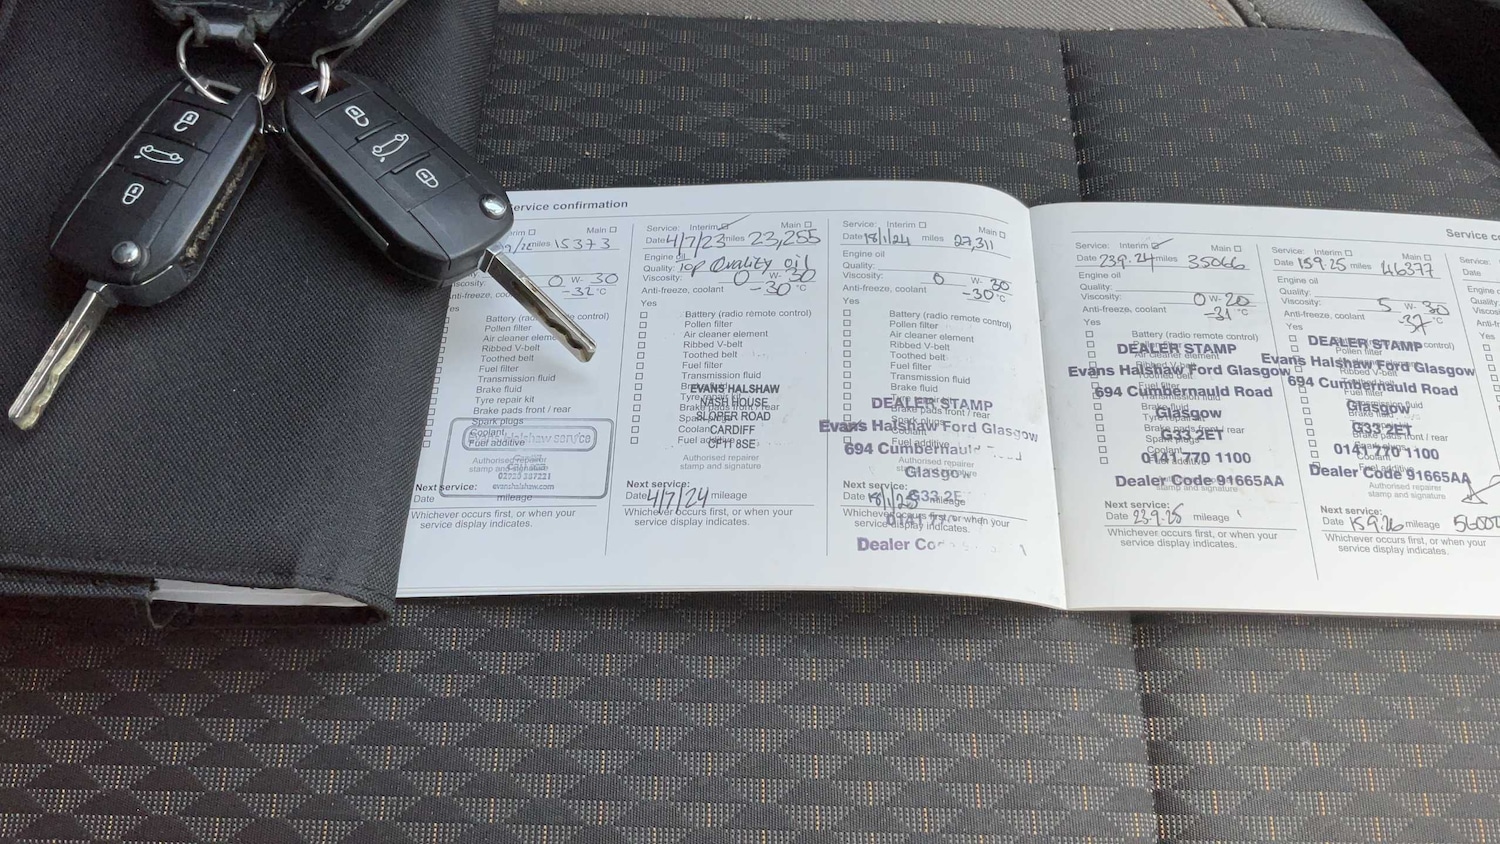 Service confirmation
Main
miles 15373
0 W- 30
-32 °C
Anti-freeze, coolant
Yes
Battery (radio remote control)
Pollen filter
Air cleaner element
Ribbed V-belt
Toothed belt
Fuel filter
Transmission fluid
Brake fluid
Tyre repair kit
Brake pads front / rear
Spark plugs
Coolant
Fuel additive
Authorised repairer
stamp and signature
evanshalshaw.com
Next service:
Date mileage
Whichever occurs first, or when your
service display indicates.
Service: Interim Main
Date 4/7/23 miles 23,255
Engine oil
Quality: Top Quality oil
Viscosity: 0 W- 30
Anti-freeze, coolant -30 °C
Yes
Battery (radio remote control)
Pollen filter
Air cleaner element
Ribbed V-belt
Toothed belt
Fuel filter
Transmission fluid
EVANS HALSHAW
NASH HOUSE
SLOPER ROAD
CARDIFF
CF11 8SE
Authorised repairer
stamp and signature
Next service:
Date 4/7/24 mileage
Whichever occurs first, or when your
service display indicates.
Service: Interim Main
Date 18/1/24 miles 27,311
Engine oil
Quality:
Viscosity: 0 W- 30
Anti-freeze, coolant -30 °C
Yes
Battery (radio remote control)
Pollen filter
Air cleaner element
Ribbed V-belt
Toothed belt
Fuel filter
Transmission fluid
Brake fluid
DEALER STAMP
Brake pads front / rear
Evans Halshaw Ford Glasgow
Fuel additive
694 Cumbernaul
Authorised repairer
stamp and signature
Glasgow
Next service:
Date 18/1/25 mileage
G33 2E
Whichever occurs first, or when your
service display indicates.
Dealer Co
Service co
Service: Interim Main
Date 23.9.24 miles 35066
Engine oil
Quality:
Viscosity: 0 W- 20
Anti-freeze, coolant -31 °C
Yes
DEALER STAMP
Evans Halshaw Ford Glasgow
694 Cumbernauld Road
Glasgow
G33 2ET
0141 770 1100
Dealer Code 91665AA
stamp and signature
Next service:
Date 23.9.25 mileage
Whichever occurs first, or when your
service display indicates.
Service: Interim Main
Date 15.9.25 miles 46377
Engine oil
Quality:
Viscosity: 5 W- 30
Anti-freeze, coolant -37 °C
Yes
DEALER STAMP
Evans Halshaw Ford Glasgow
694 Cumbernauld Road
Glasgow
G33 2ET
0141 770 1100
Dealer Code 91665AA
Authorised repairer
stamp and signature
Next service:
Date 15.9.26 mileage
Whichever occurs first, or when your
service display indicates.
Service
Date
Engine
Quality
Viscos
Anti-fr
Yes